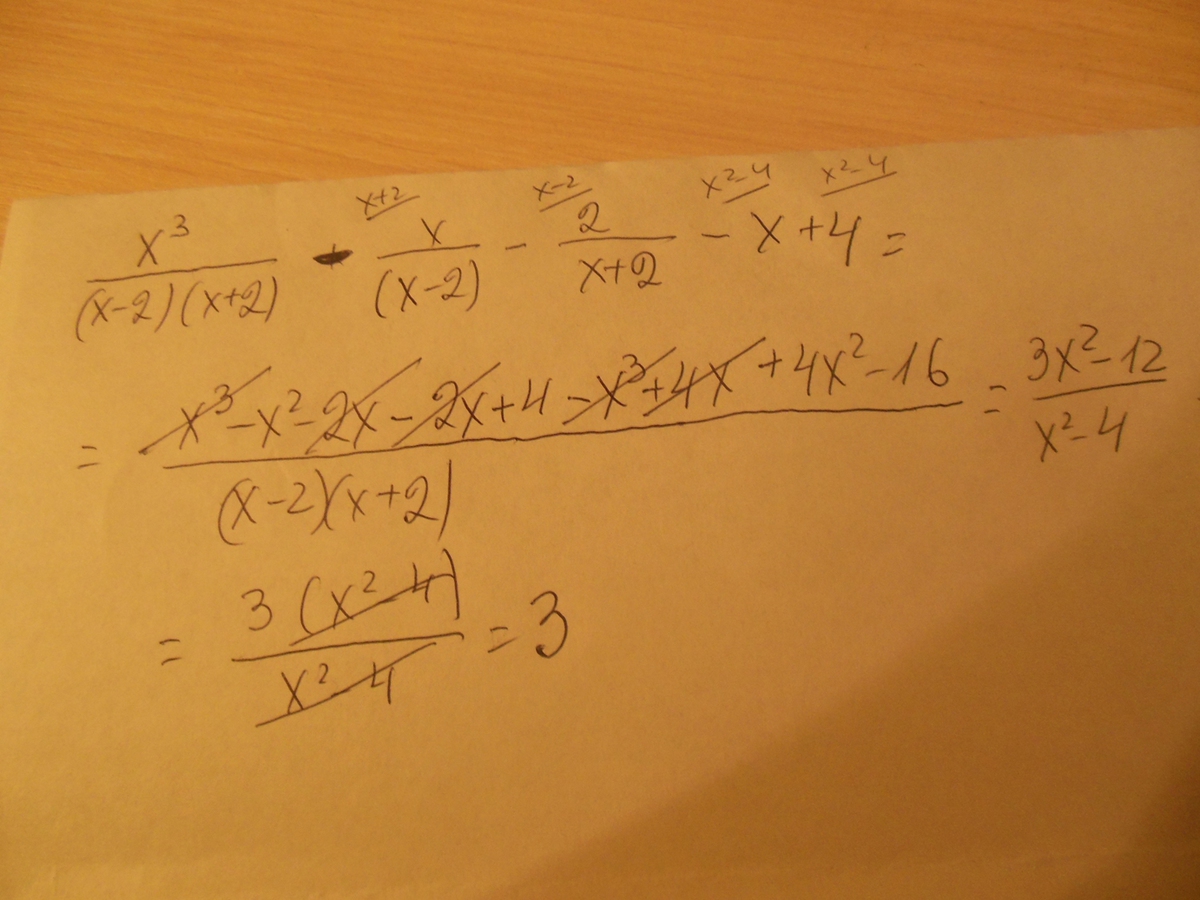 x+2 x-2 x²-4 x²-4
x³/((x-2)(x+2)) - x/(x-2) - 2/(x+2) - x + 4 =
= (x³-x²-2x-2x+4-x³+4x+4x²-16)/((x-2)(x+2)) = (3x²-12)/(x²-4)
= 3(x²-4)/(x²-4) = 3